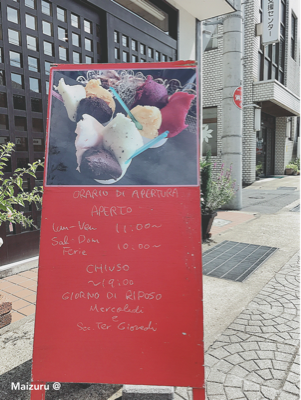 援センター
ORARIO DI APERTURA
APERTO
Lun-Ven 11.00~
Sab-Dom 10.00~
Ferie
CHIUSO
~19.00
GIORNO DI RIPOSO
Mercoledi
e
Sec. Ter Giovedi
Maizuru @